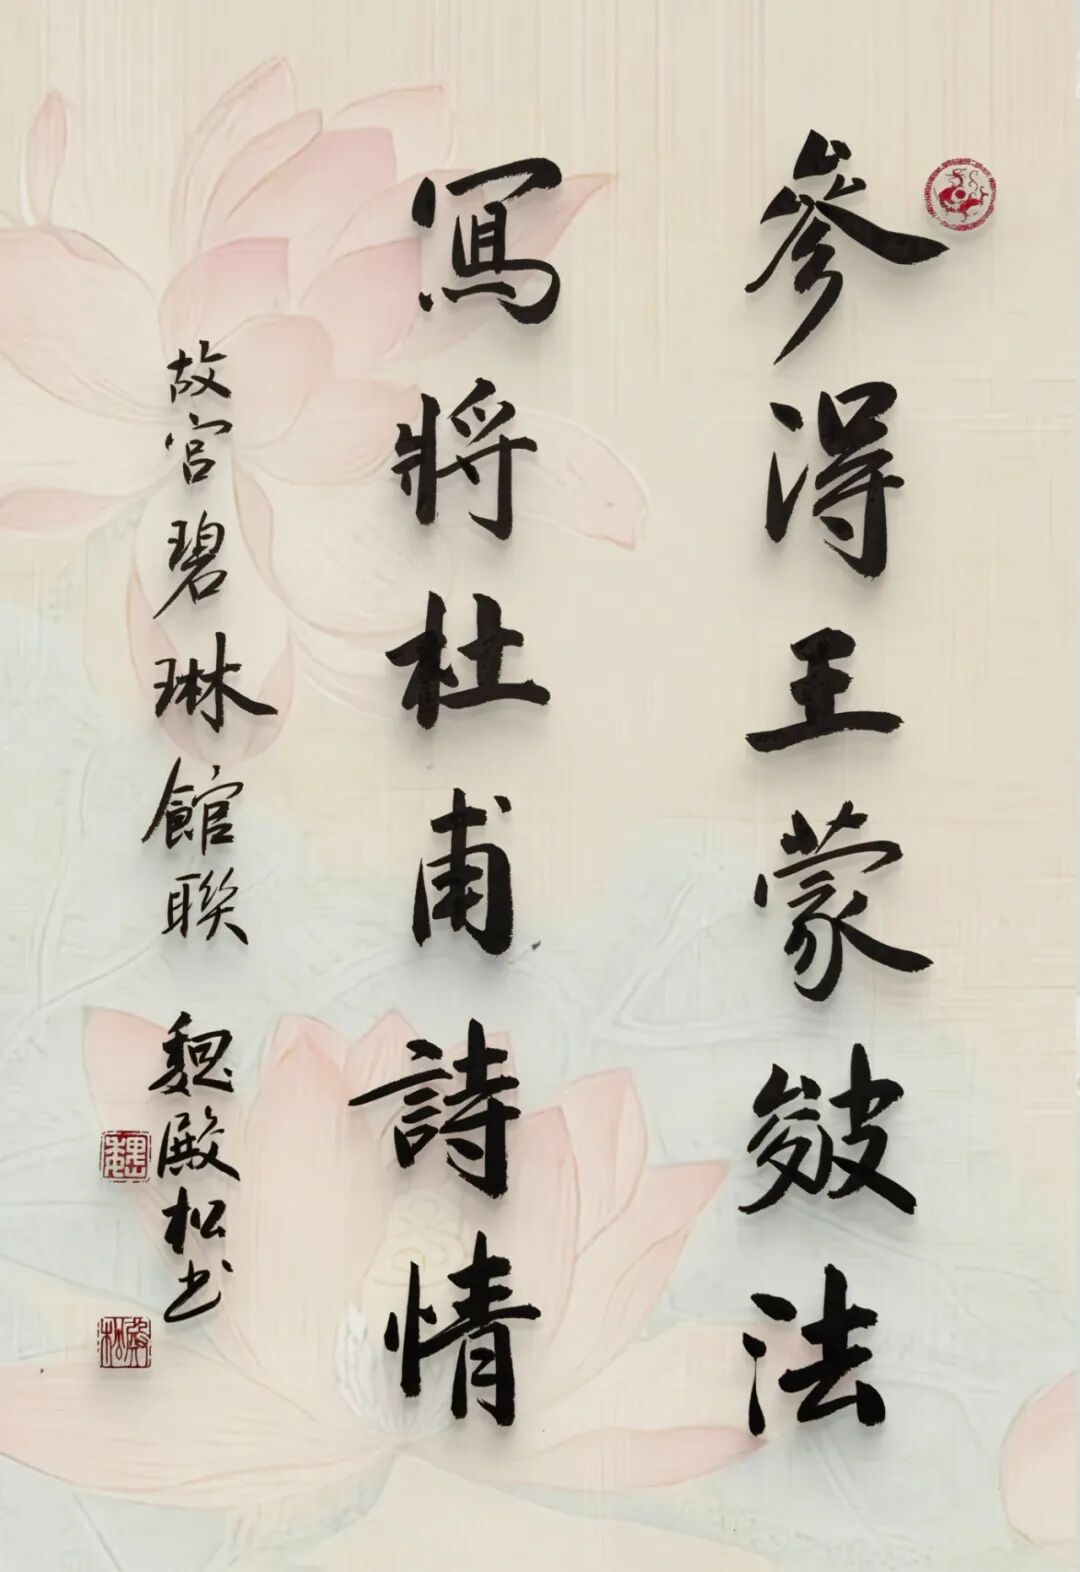 參得王蒙皴法
寫將杜甫詩情
故宮碧琳館聯 魏殿松书
魏
殿松